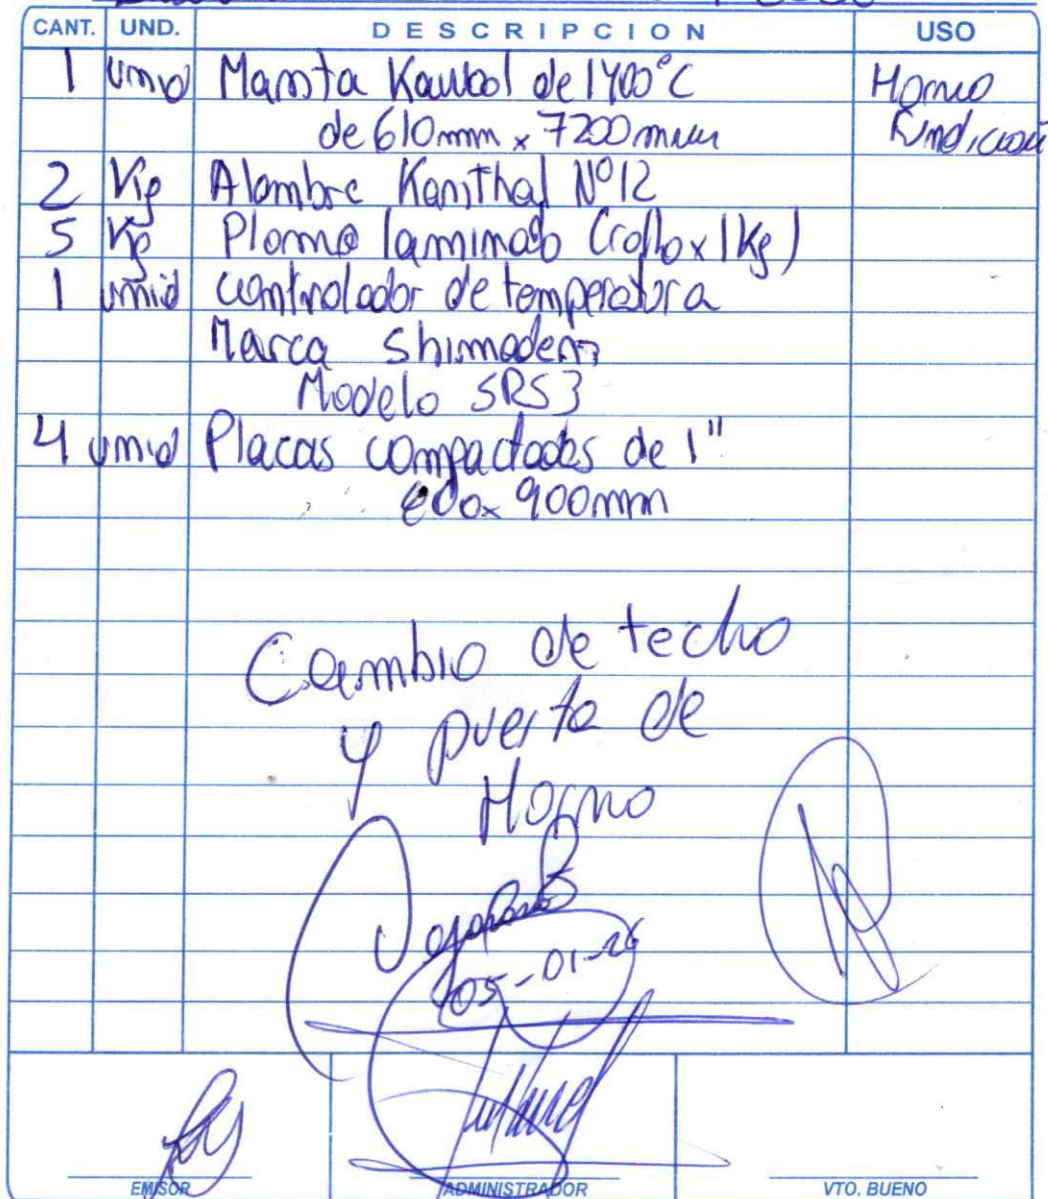 CANT. UND. DESCRIPCION USO
1 unid Manta Kawool de 1400°C Horno
de 610mm x 7200mm Fundicion
2 Kg Alambre Kanthal N°12
5 Kg Plomo laminado (rollo x 1Kg)
1 unid controlador de temperatura
Marca Shimaden
Modelo SRS3
4 unid Placas compactadas de 1"
x 900mm
Cambio de techo
y puerta de
Horno
05-01-26
EMISOR ADMINISTRADOR VTO. BUENO